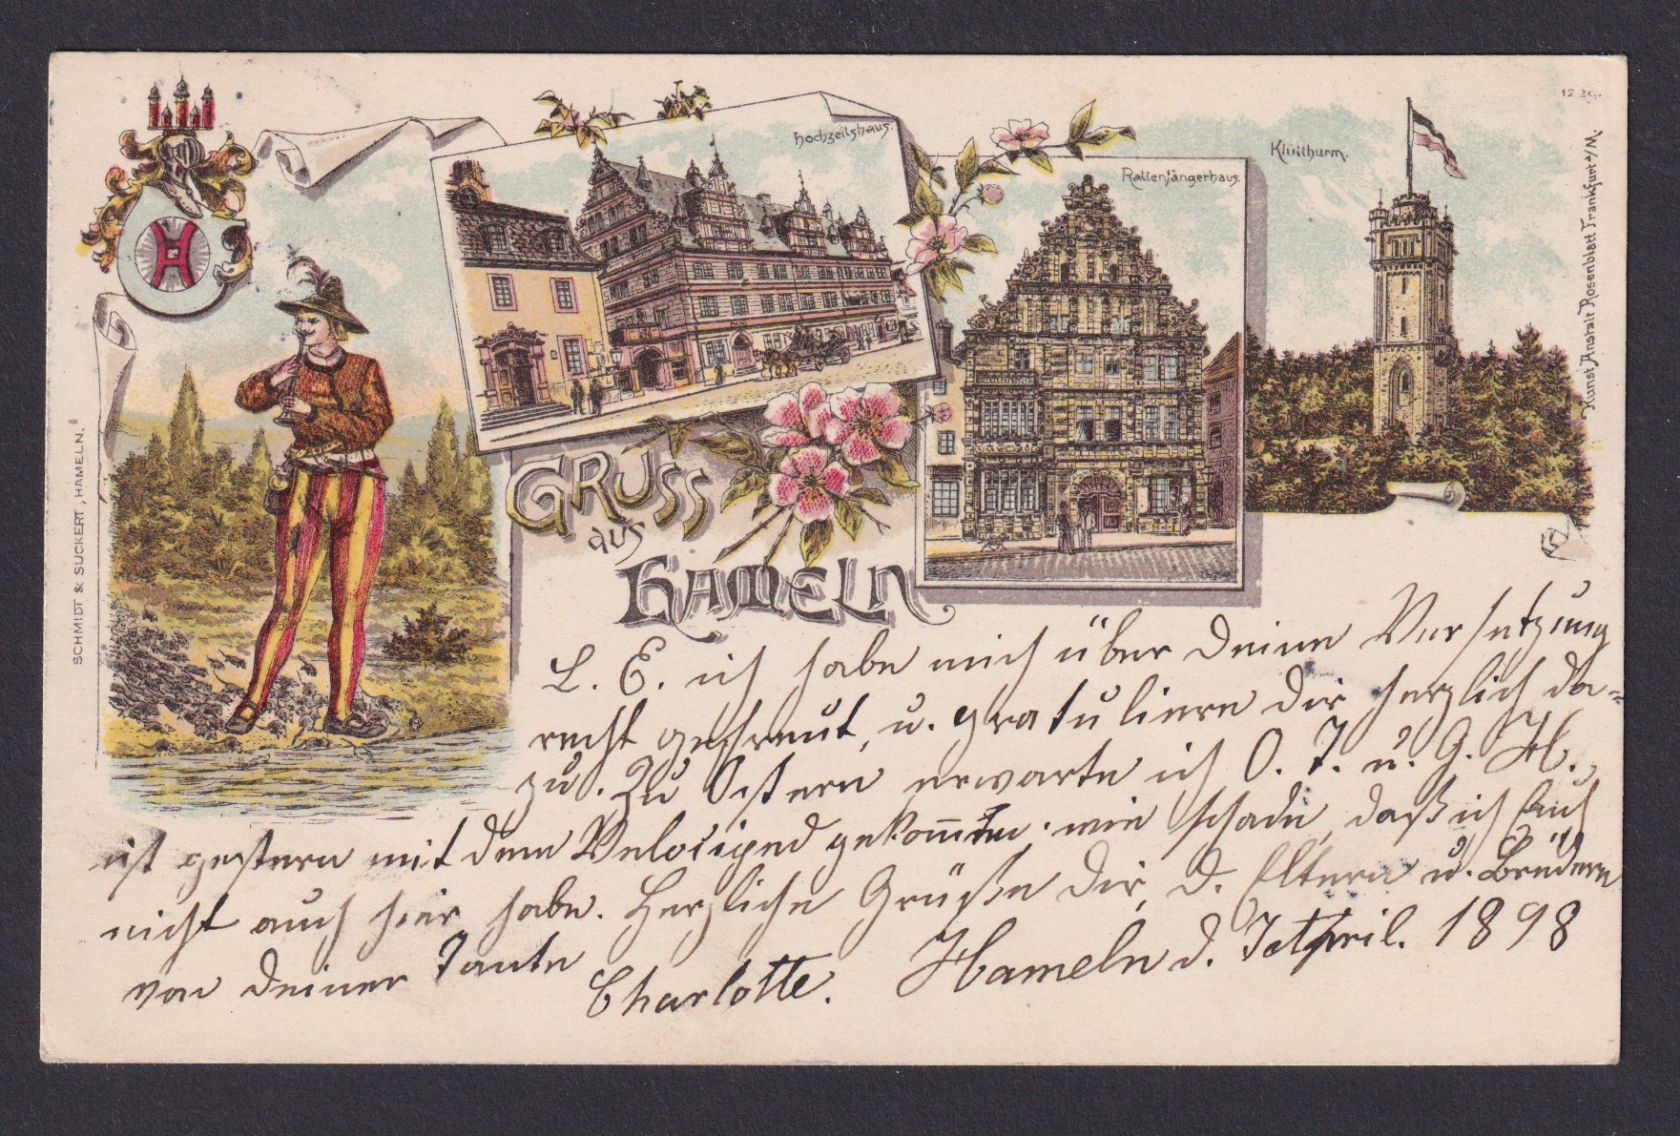 Hochzeitshaus.
Rattenfängerhaus.
Klütthurm.
Kunst Anstalt Rosenblatt Frankfurt a/M.
SCHMIDT & SUCKERT, HAMELN.
GRUSS
aus
HAMELN
L. E. ich habe mich über deine Versetzung
recht gefreut, u. gratuliere dir herzlich da-
zu. Zu Ostern erwarte ich O. T. u. G. H.
ist gestern mit dem Velociped gekom̅en. wie schade, daß ich Euch
nicht auch hier habe. Herzliche Grüße dir, d. Eltern u. Brüdern
von deiner Tante Charlotte. Hameln d. April. 1898